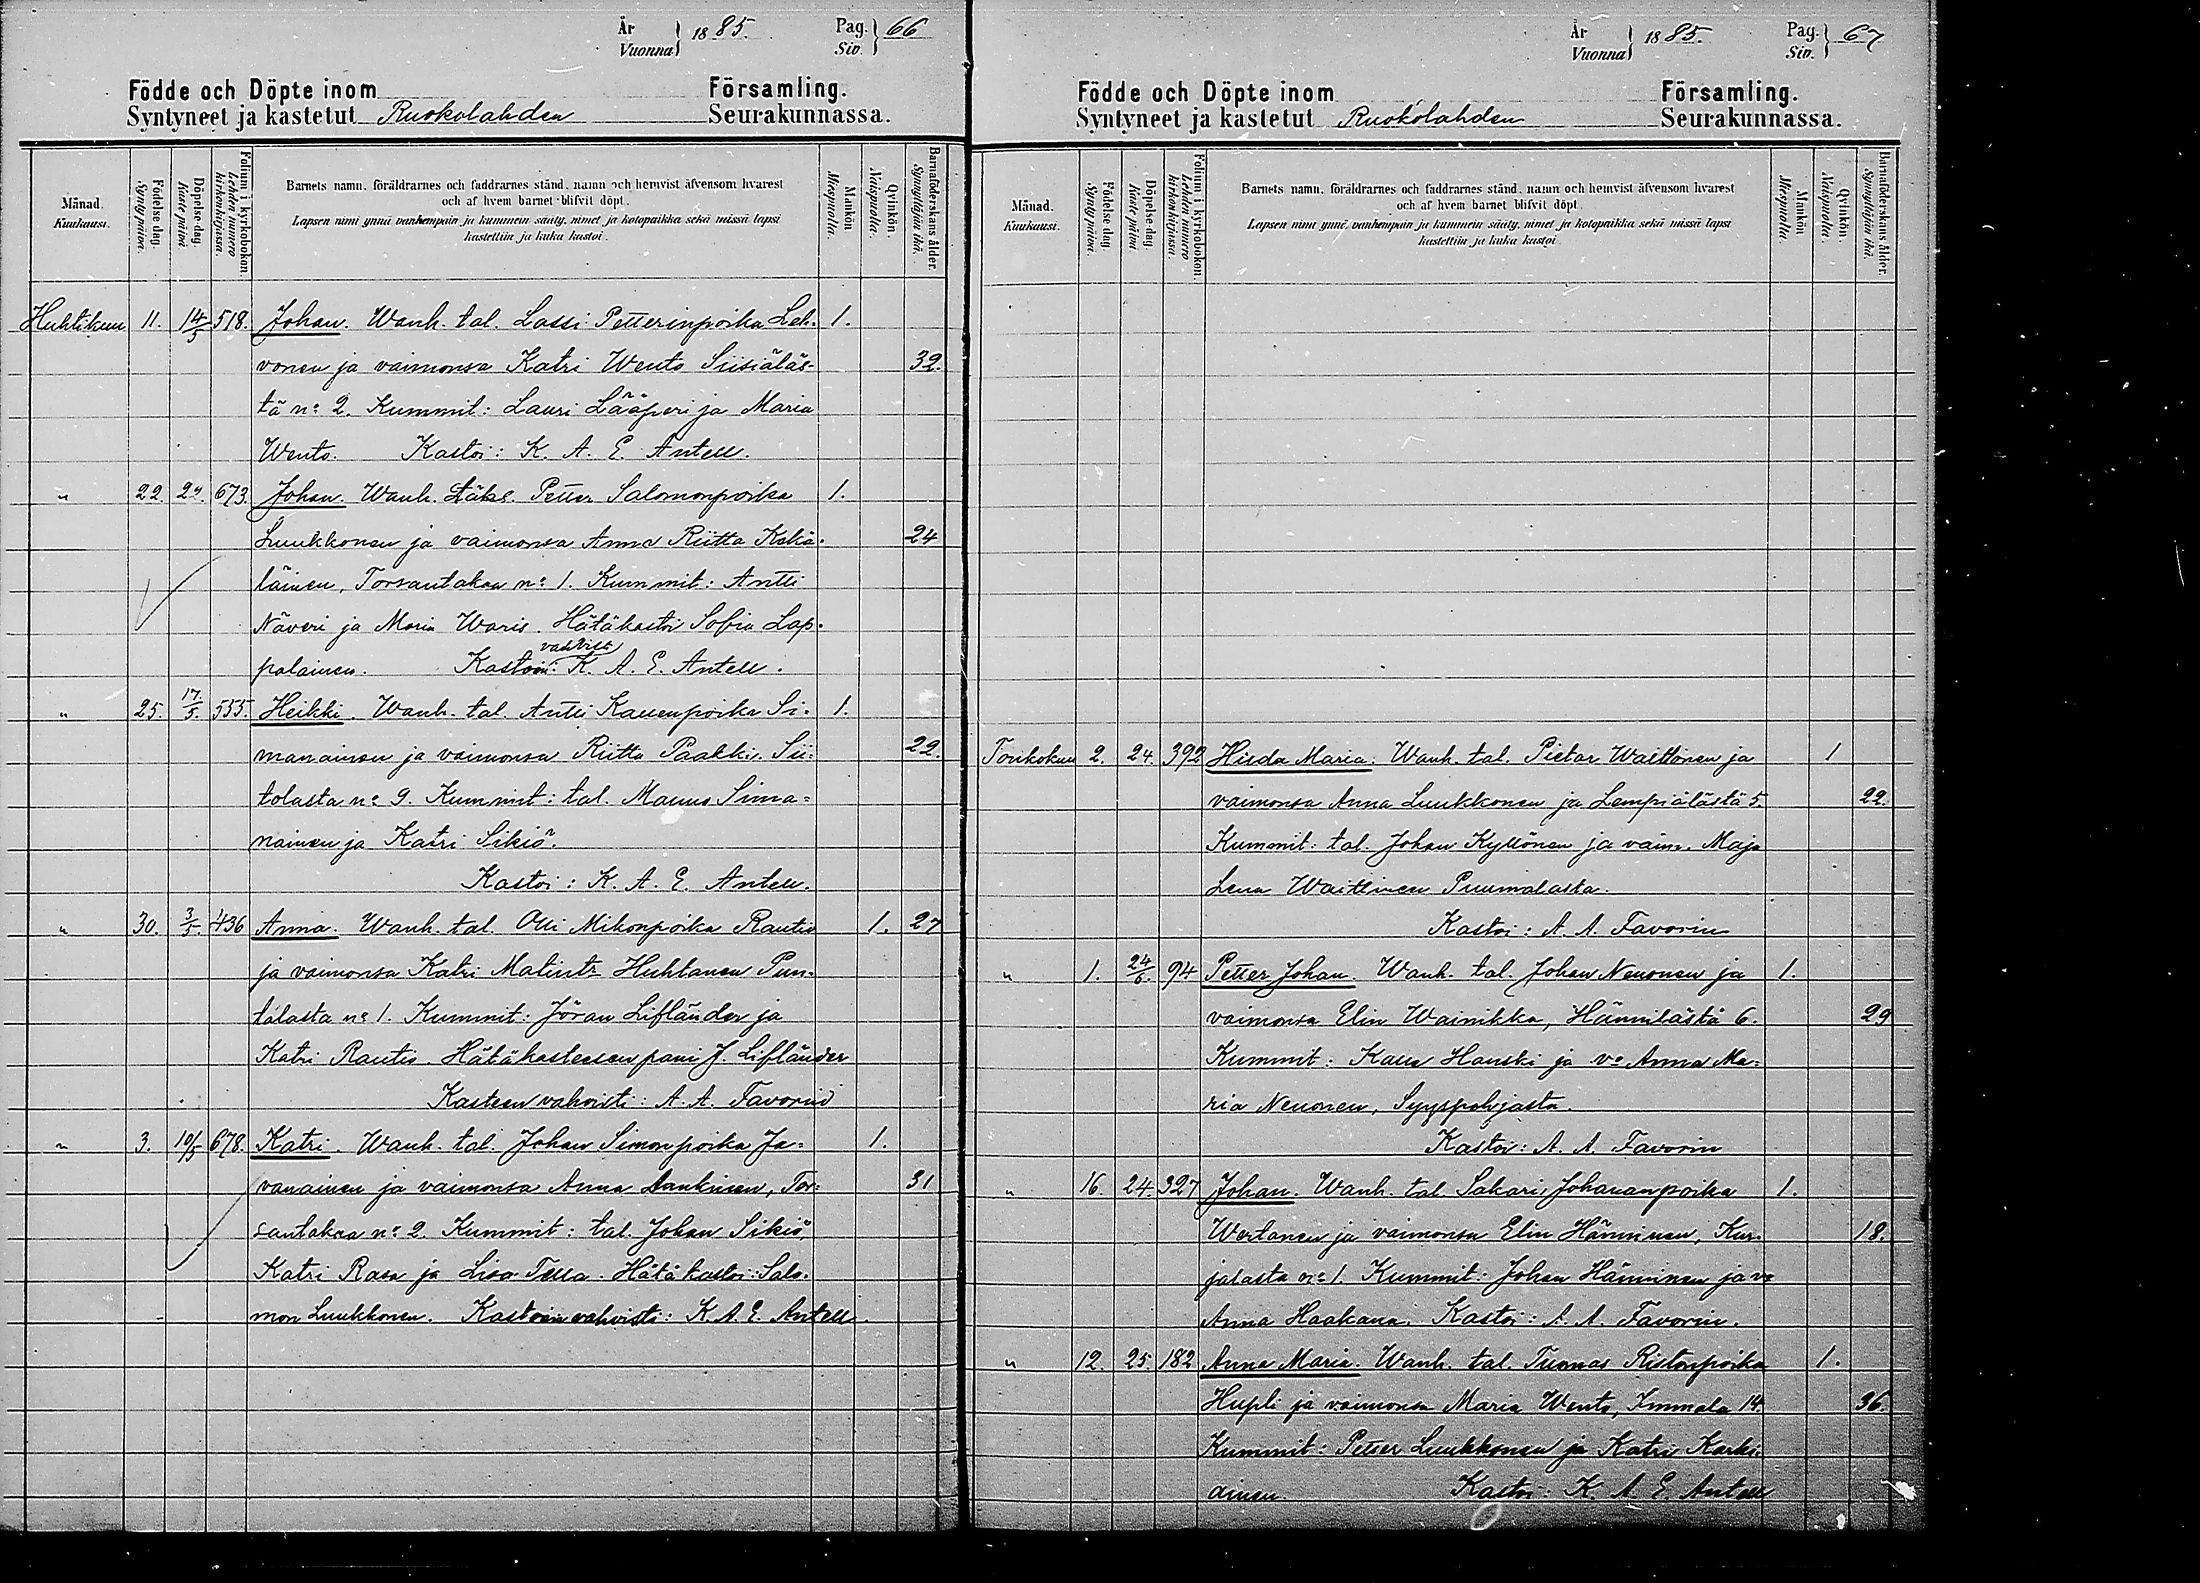 År Vuonna } 1885. Pag. Siv. } 66
Födde och Döpte inom Församling.
Syntyneet ja kastetut Ruokolahden Seurakunnassa.
Månad. Kuukausi.
Födelse dag. Synty päivä.
Döpelse-dag. Kaste päivä.
Folium i kyrkobokon. Lehden numero kirkonkirjassa.
Barnets namn, föräldrarnes och faddrarnes stånd, namn och hemvist äfvensom hvarest
och af hvem barnet blifvit döpt.
Lapsen nimi ynnä vanhempain ja kummein sääty, nimet ja kotopaikka sekä missä lapsi
kastettiin ja kuka kastoi.
Mankön Miespuolia.
Qvinkön. Naispuolia.
Barnaföderskans ålder. Synnyttäjän ikä.
Huhtikuu 11. 14/5 518. Johan. Wanh. tal. Lassi Petterinpoika Leh- 1.
vonen ja vaimonsa Katri Wento Siisiäläs- 32.
tä no 2. Kummit: Lauri Lääperi ja Maria
Wento. Kastoi: K. A. E. Antell.
" 22. 24. 673. Johan. Wanh. Petter Salomonpoika 1.
Luukkonen ja vaimonsa Anna Riitta Kekä- 24
läinen, Torsantakaa no 1. Kummit: Antti
Näveri ja Maria Waris. Hätäkastoi Sofia Lap-
vahvisti
palainen. Kastoin: K. A. E. Antell.
" 25. 17/5. 555. Heikki. Wanh. tal. Antti Kauenpoika Si- 1.
manainen ja vaimonsa Riitta Paakki. Sii- 22.
tolasta no 9. Kummit: tal. Maunus Sima=
nainen ja Katri Sikiö.
Kastoi: K. A. E. Antell.
" 30. 3/5. 436 Anna. Wanh. tal. Olli Mikonpoika Rautio 1. 27
ja vaimonsa Katri Matintr Huhtanen Pun-
talasta no 1. Kummit: Jöran Lifländer ja
Katri Rautio. Hätäkasteesen pani J. Lifländer
Kasteen vahvisti: A. A. Favorin
" 3. 10/5 678. Katri. Wanh. tal. Johan Simonpoika Ja= 1.
vanainen ja vaimonsa Anna Lankinen, Tor- 31
santakaa no 2. Kummit: tal. Johan Sikiö,
Katri Rasa ja Lisa Tella. Hätäkastoi: Salo-
mon Luukkonen. Kastoin vahvisti: K. A. E. Antell.
År Vuonna } 1885. Pag. Siv. } 67
Födde och Döpte inom Församling.
Syntyneet ja kastetut Ruokolahden Seurakunnassa.
Månad. Kuukausi.
Födelse dag. Synty päivä.
Döpelse-dag. Kaste päivä.
Folium i kyrkobokon. Lehden numero kirkonkirjassa.
Barnets namn, föräldrarnes och faddrarnes stånd, namn och hemvist äfvensom hvarest
och af hvem barnet blifvit döpt.
Lapsen nimi ynnä vanhempain ja kummein sääty, nimet ja kotopaikka sekä missä lapsi
kastettiin ja kuka kastoi.
Mankön Miespuolia.
Qvinkön. Naispuolia.
Barnaföderskans ålder. Synnyttäjän ikä.
Toukokuu 2. 24. 392 Hilda Maria. Wanh. tal. Pietar Waittinen ja 1
vaimonsa Anna Luukkonen ja Lempiälästä 5. 22.
Kummit: tal. Johan Kyllönen ja vaim. Maja
Lena Waittinen Puumalasta.
Kastoi: A. A. Favorin
" 1. 24/6. 94 Petter Johan. Wanh. tal. Johan Neuonen ja 1.
vaimonsa Elin Wainikka, Hännilästä 6. 29
Kummit: Kaua Hauski ja vo Anna Ma-
ria Neuonen, Syyspohjasta.
Kastoi: A. A. Favorin
" 16. 24. 327 Johan. Wanh. tal. Sakari Johananpoika 1.
Wertanen ja vaimonsa Elin Hänninen, Kur- 18.
jalasta no 1. Kummit: Johan Hänninen ja vo
Anna Haakana. Kastoi: A. A. Favorin.
" 12. 25. 182 Anna Maria. Wanh. tal. Tuomas Ristonpoika 1.
Hupli ja vaimonsa Maria Wento, Immala 14. 36.
Kummit: Petter Luukkonen ja Katri Karki-
ainen. Kastoi: K. A. E. Antell